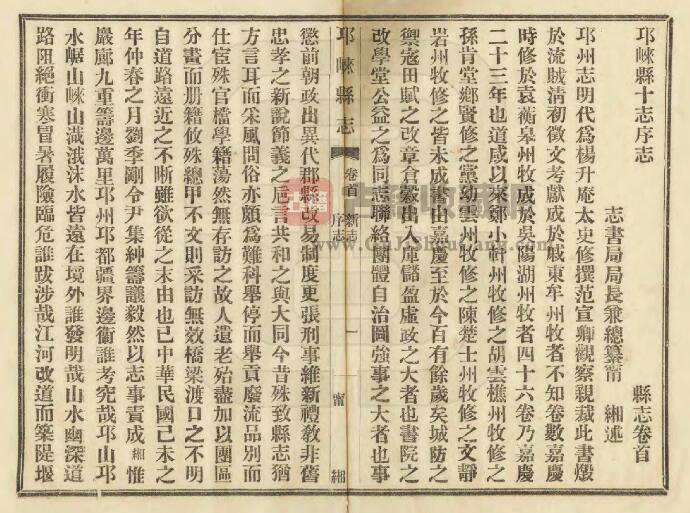 邛崍縣十志序志
縣志卷首
志書局局長兼總纂甯 緗述
邛州志明代爲楊升庵太史修撰范宣卿觀察親裁此書燬
於流賊清初徵文考獻成於戚東牟州牧者不知卷數嘉慶
時修於袁蘅皋州牧成於吳陽湖州牧者四十六卷乃嘉慶
二十三年也道咸以來鄭小軒州牧修之胡雲樵州牧修之
孫肯堂鄉賢修之黨幼雲州牧修之陳楚士州牧修之文靜
岩州牧修之皆未成書由嘉慶至於今百有餘歲矣城防之
禦寇田賦之改章倉穀出入庫儲盈虛政之大者也書院之
改學堂公益之爲同志聯絡團體自治圖強事之大者也事
邛崍縣志
卷首 新志
序志
一
甯 緗
懲前朝政出異代郡縣改易制度更張刑事維新禮敎非舊
忠孝之新說節義之卮言共和之與大同今昔殊致縣志猶
方言耳而宋風問俗亦頗爲難科舉停而舉貢廢流品別而
仕宦殊官檔學籍蕩然無存訪之故人遺老殆盡加以團區
分畫而册籍攸殊總甲不文則采訪無效橋梁渡口之不明
自道路遠近之不晰雖欲從之末由也已中華民國己未之
年仲春之月劉季剛令尹集紳籌議毅然以志事責成緗惟
嚴廊九重籌邊萬里邛州邛都疆界邊衞誰考究哉邛山邛
水崌山崍山濊涐沫水皆遠在境外誰發明哉山水幽深道
路阻絕衝寒冒暑履險臨危誰跋涉哉江河改道而築隄堰